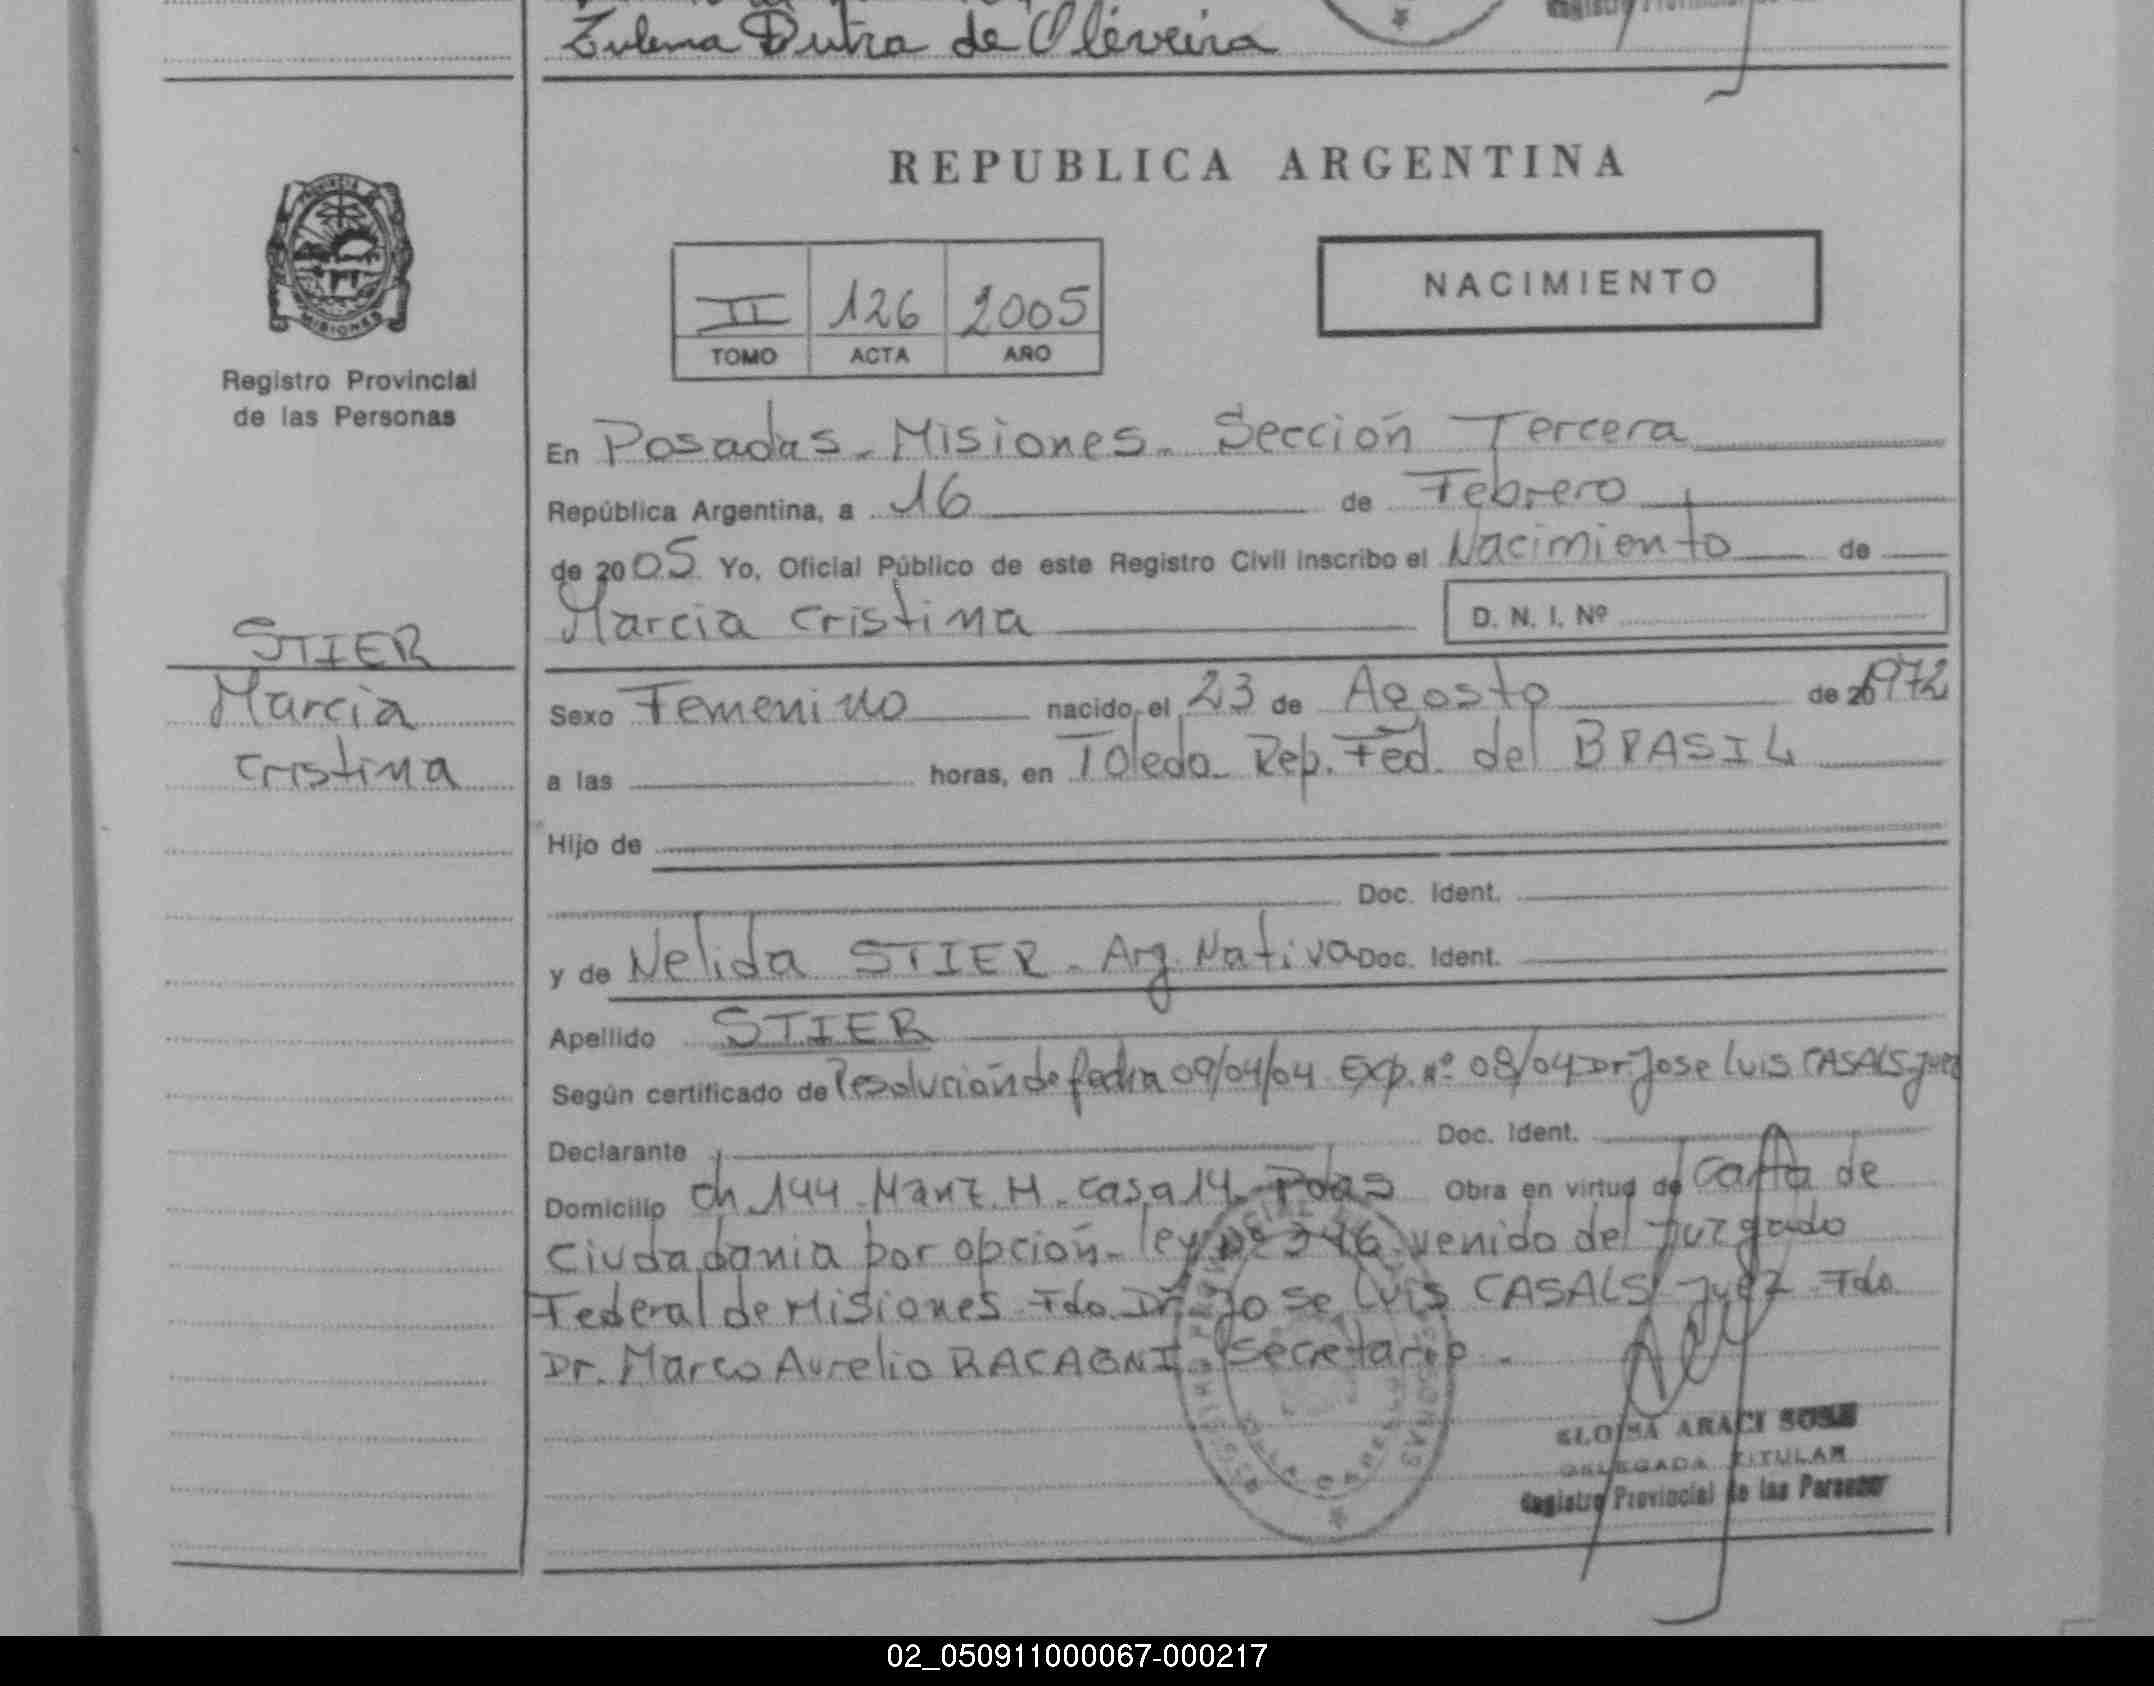 Zulema Dutra de Oliveira
REPUBLICA ARGENTINA
NACIMIENTO
II 126 2005
TOMO ACTA AÑO
MISIONES
Registro Provincial
de las Personas
En Posadas - Misiones - Sección Tercera
República Argentina, a 16 de Febrero
de 2005 Yo, Oficial Público de este Registro Civil inscribo el Nacimiento de
Marcia Cristina D. N. I. Nº
STIER
Marcia
Cristina
Sexo Femenino nacido, el 23 de Agosto de 1972
a las horas, en Toledo - Rep. Fed. del BRASIL
Hijo de
Doc. Ident.
y de Nelida STIER - Arg. Nativa Doc. Ident.
Apellido STIER
Según certificado de Resolución de fecha 09/04/04 Exp. nº 08/04 Dr Jose Luis CASALS Juez
Declarante Doc. Ident.
Domicilio Ch. 144 - Manz. H - casa 14 - Pdas Obra en virtud de Carta de
Ciudadania por opción - ley Nº 346 venido del Juzgado
Federal de Misiones Fdo. Dr. Jose Luis CASALS Juez Fdo
Dr. Marco Aurelio RACAGNI - Secretario -
ELOISA ARACI SOSA
DELEGADA TITULAR
Registro Provincial de las Personas
02_050911000067-000217